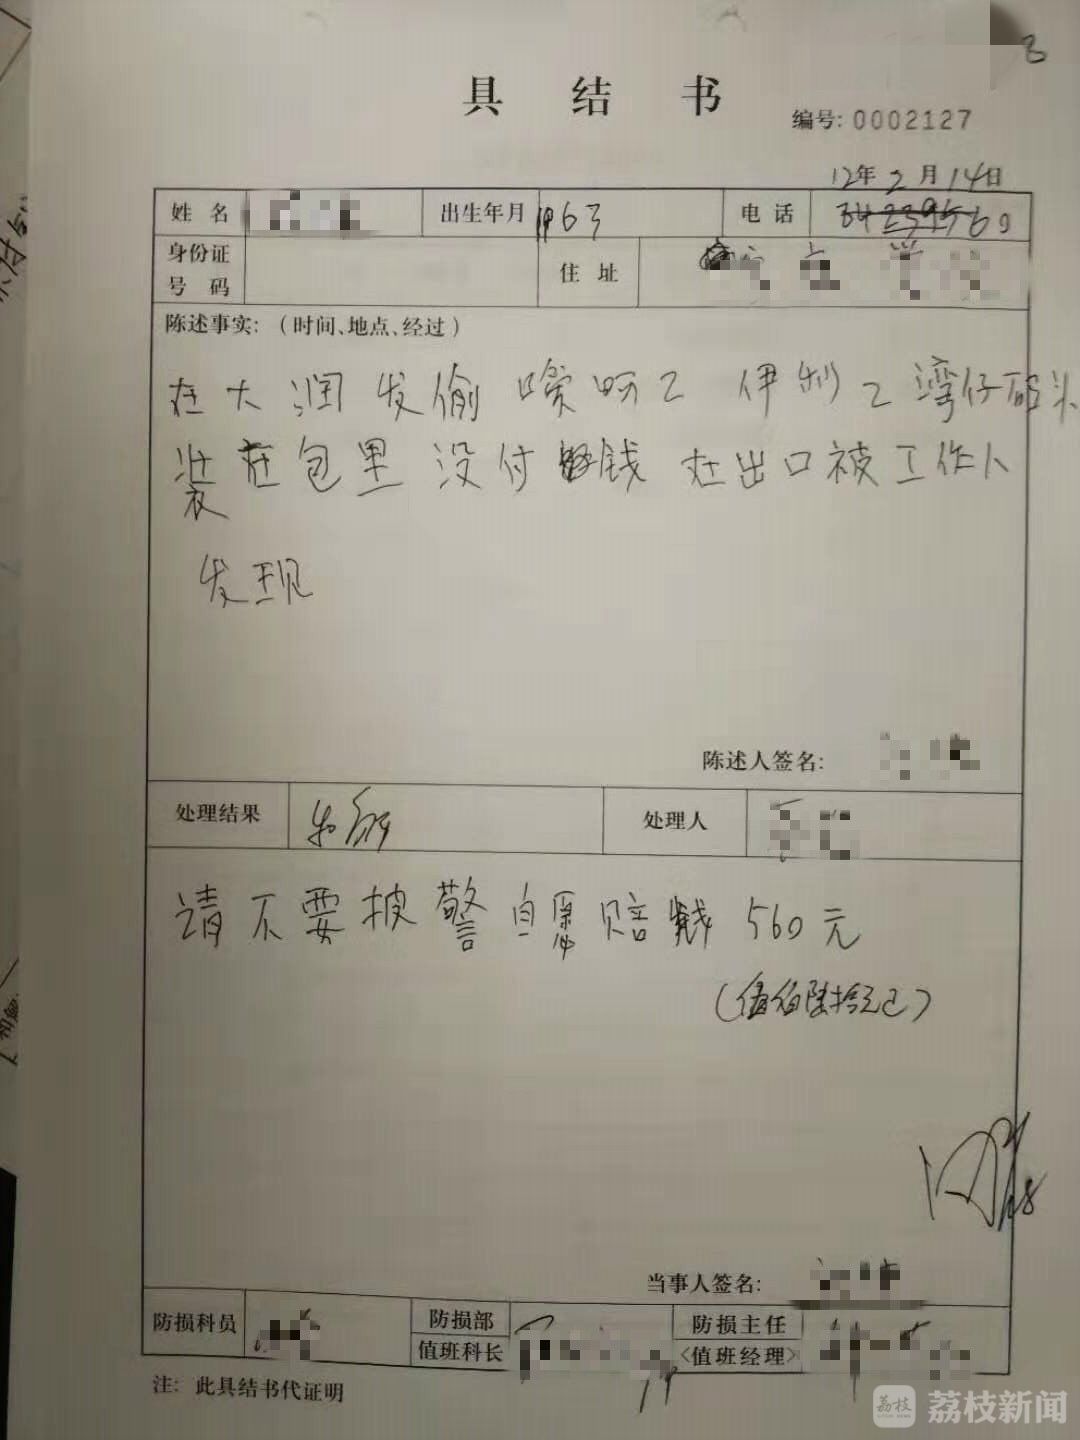 具 结 书
编号: 0002127
12年 2 月 14日
姓 名
出生年月 1963
电 话
身份证
号 码
住 址
陈述事实: (时间、地点、经过)
在大润发偷 伊利 2 湾仔码头
装在包里 没付钱 在出口被工作人
发现
陈述人签名:
处理结果
处理人
请不要披警自愿赔钱 560元
当事人签名:
防损科员
防损部
值班科长
防损主任
<值班经理>
注: 此具结书代证明
荔枝
荔枝新闻